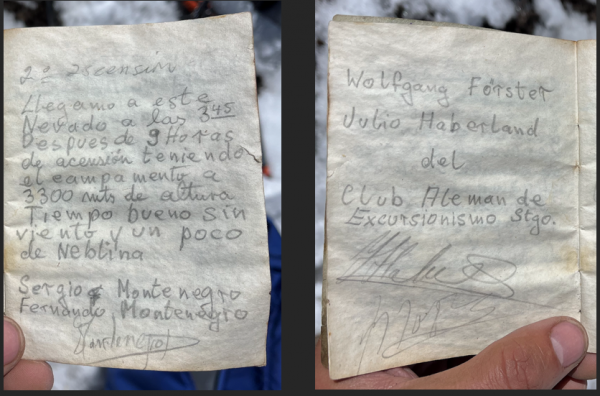 2ª ascensión
Llegamo a este
Nevado a las 3 45
Despues de 9 Horas
de acensión teniendo
el campamento a
3300 mts de altura
Tiempo bueno sin
viento y un poco
de Neblina
Sergio Montenegro
Fernando Montenegro
Wolfgang Förster
Julio Haberland
del
Club Aleman de
Excursionismo Stgo.